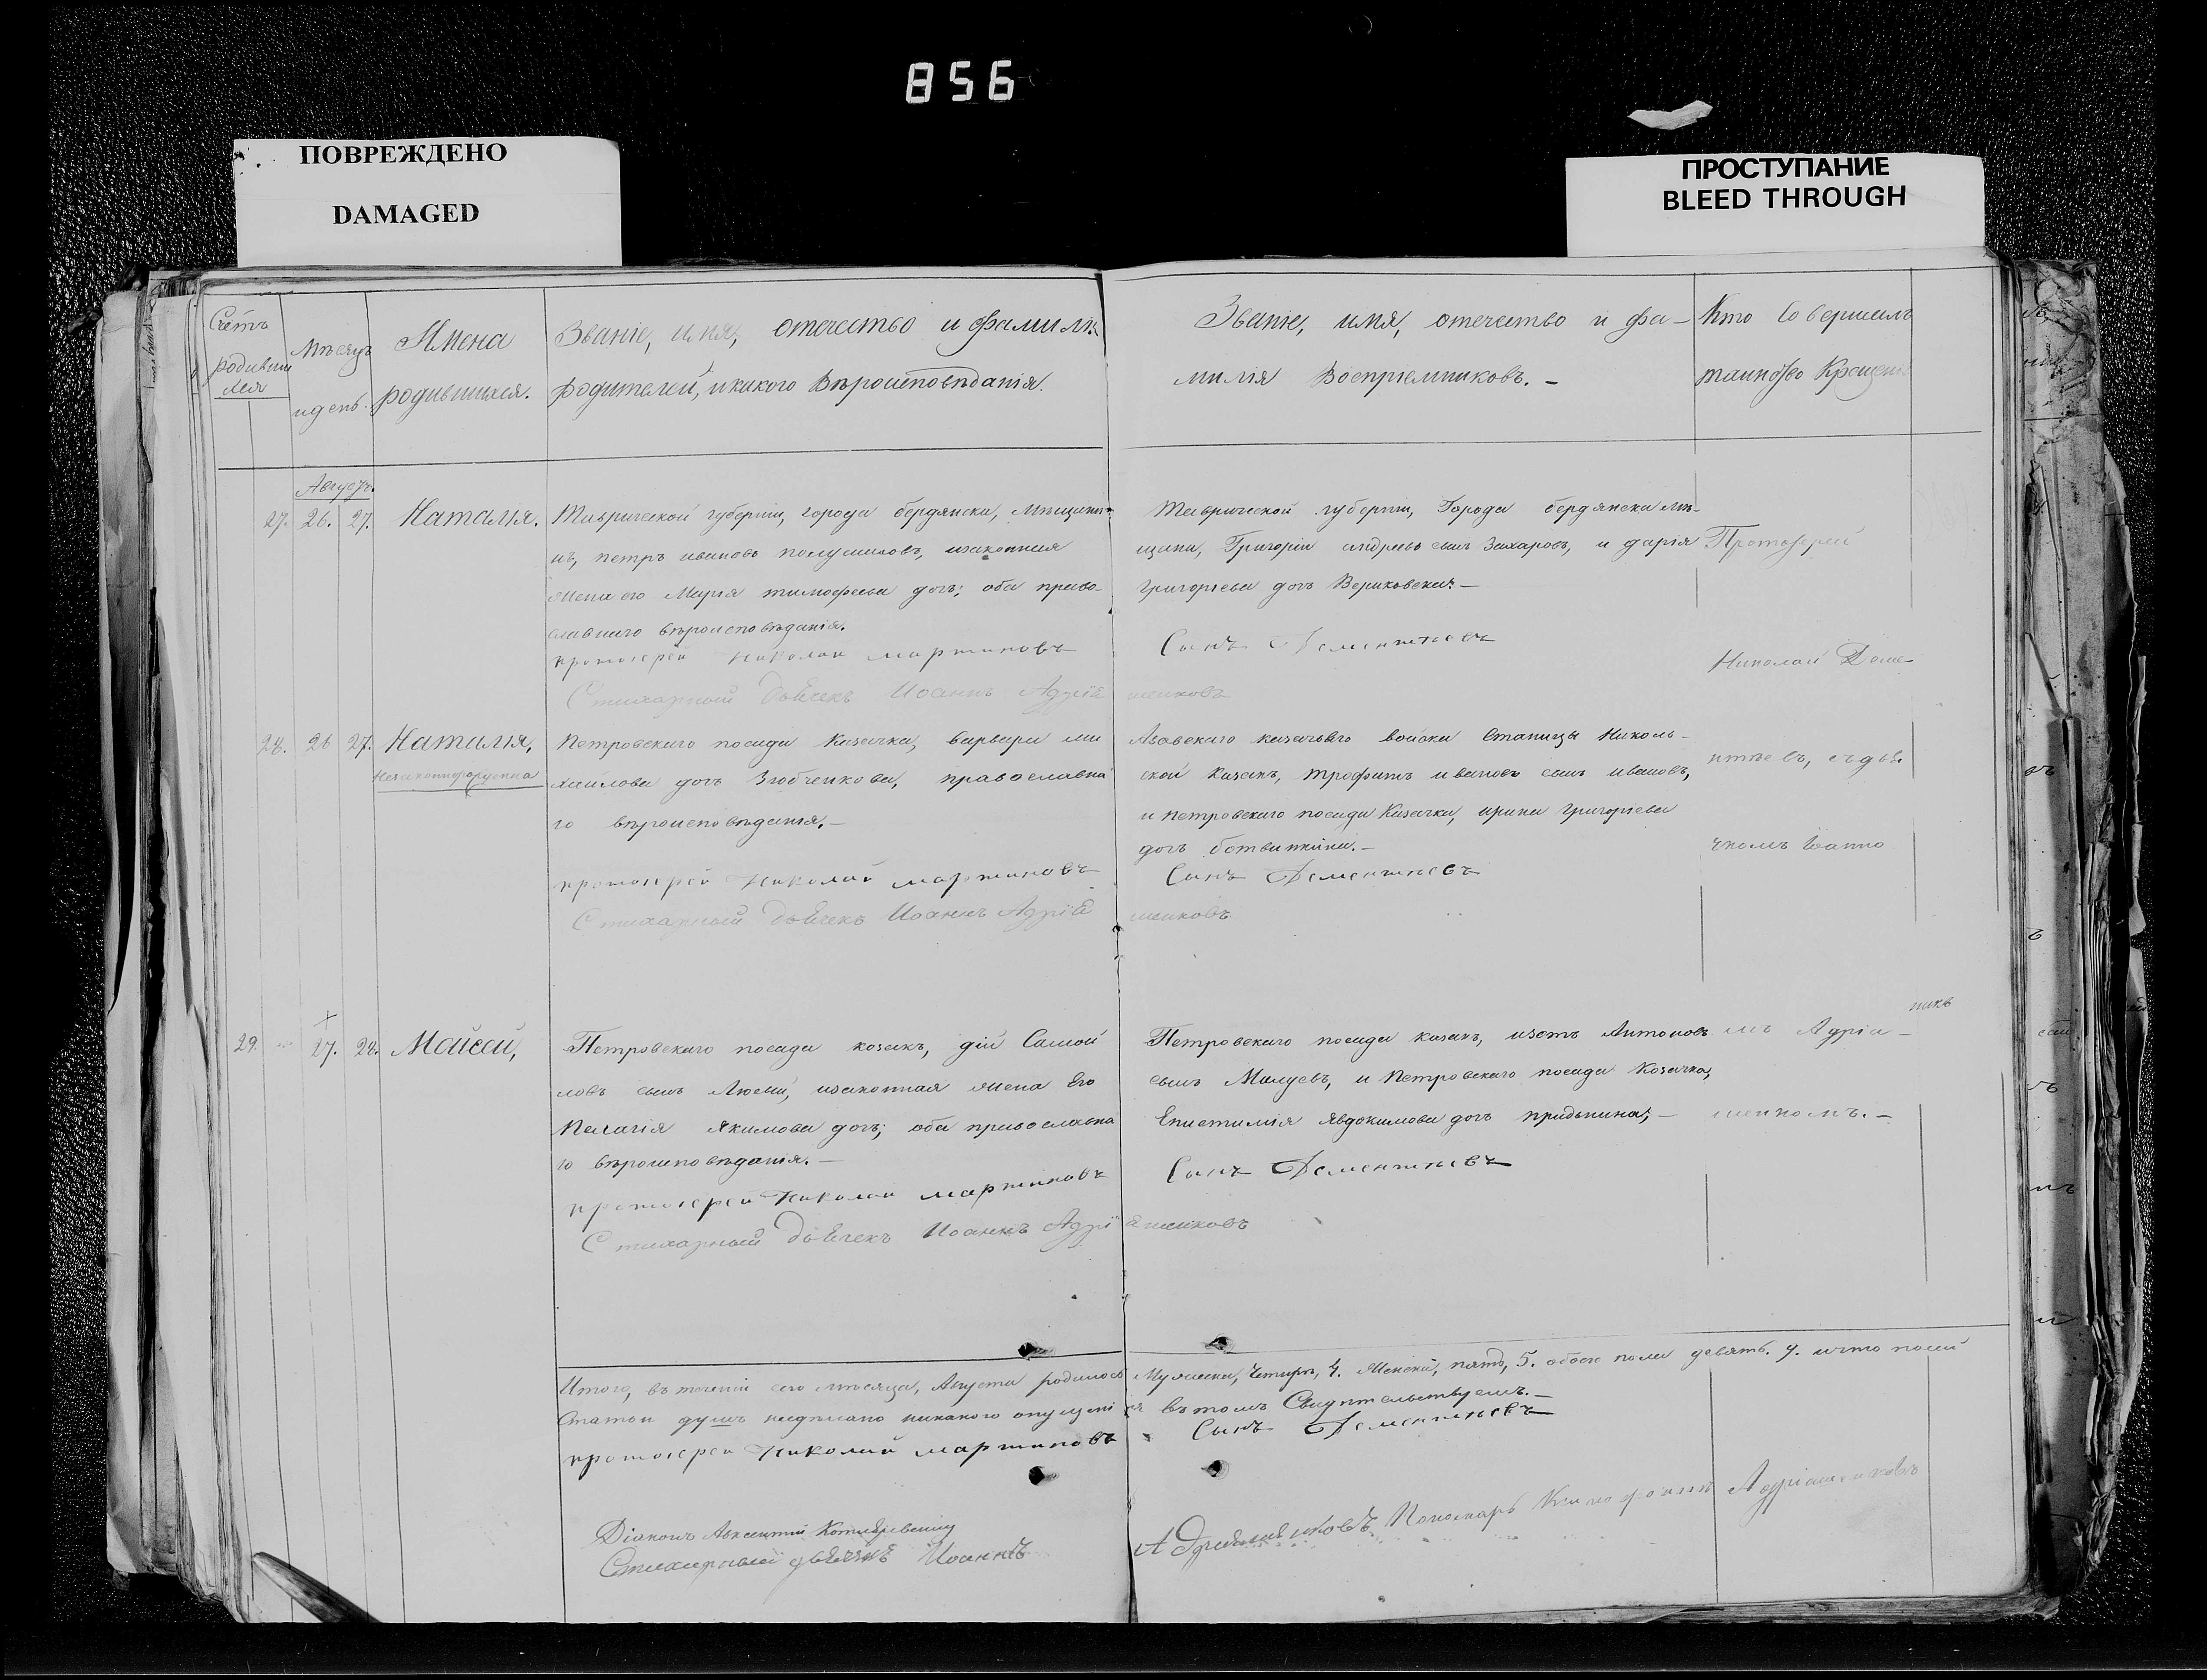 856
ПОВРЕЖДЕНО
DAMAGED
ПРОСТУПАНИЕ
BLEED THROUGH
Счетъ
родивши
мся
Мѣсяцъ
и день.
Имена
родившихся.
Званіе, имя, отечество и фамилія
родителей, и какого Вѣроисповѣданія.
Званіе, имя, отечество и фа-
милія Воспріемниковъ. -
Кто Совершалъ
таинство Крещенія
Августъ.
27. 26. 27. Наталія.
Таврической губерніи, города бердянска, Мѣщани-
нъ, петръ ивановъ
жена его Марія тимофеева дочь; оба право-
славнаго вѣроисповѣданія.
протоіерей Николай мартиновъ
Стихарный дьячекъ Иоаннъ Адрія
Таврической губерніи, Города бердянска мѣ-
щани, Григорій андреевъ сынъ Захаровъ, и дарія
григорьева дочь Вериковская. -
Сынъ Дементьевъ
шенковъ
Протоіерей
Николай Деме-
28. 26 27. Наталія,
Незаконнорожденна
Петровскаго посада Казачка, варвара ми
хайлова дочь Злобченкова, православна
го вѣроисповѣданія. -
протоіерей Николай мартиновъ
Стихарный дьячекъ Иоаннъ Адрія
Азовскаго казачьяго войска Станицы Николь-
ской казакъ, трофимъ ивановъ сынъ ивановъ,
и петровскаго посада Казачка, ирина григорьева
дочь ботвинкина. -
Сынъ Дементьевъ
шенковъ
нтьевъ, съ дья.
чкомъ Іоанно
29. 27. 28. Мойсей,
Петровскаго посада козакъ, дій Самой
ловъ сынъ Люсый, изаконная жена Его
Пелагія Якимова дочь; оба православна
го вѣроисповѣданія. -
протоіерей Николай мартиновъ
Стихарный дьячекъ Иоаннъ Адрі
Петровскаго посада казакъ, изотъ Антоновъ
сынъ Милуевъ, и Петровскаго посада Козачка,
Епистимія Явдокимова дочь придьпина; -
Сынъ Дементьевъ
яшенковъ
никъ
мъ Адріа-
шенкомъ. -
Итого, въ теченіи сего мѣсяца, Августа родилось Мужеска, Четыре, 4. Женска, пять, 5. обоего пола девять. 9. и что посей
Статьи душъ нездѣлано никакого опущенія въ томъ Свидѣтельствуемъ. -
протоіерей Николай мартиновъ Сынъ Дементьевъ
Діаконъ Авксентій Котляревскій
Стихарный дьячекъ Иоаннъ Адріяшенковъ Пономарь Адріашенковъ